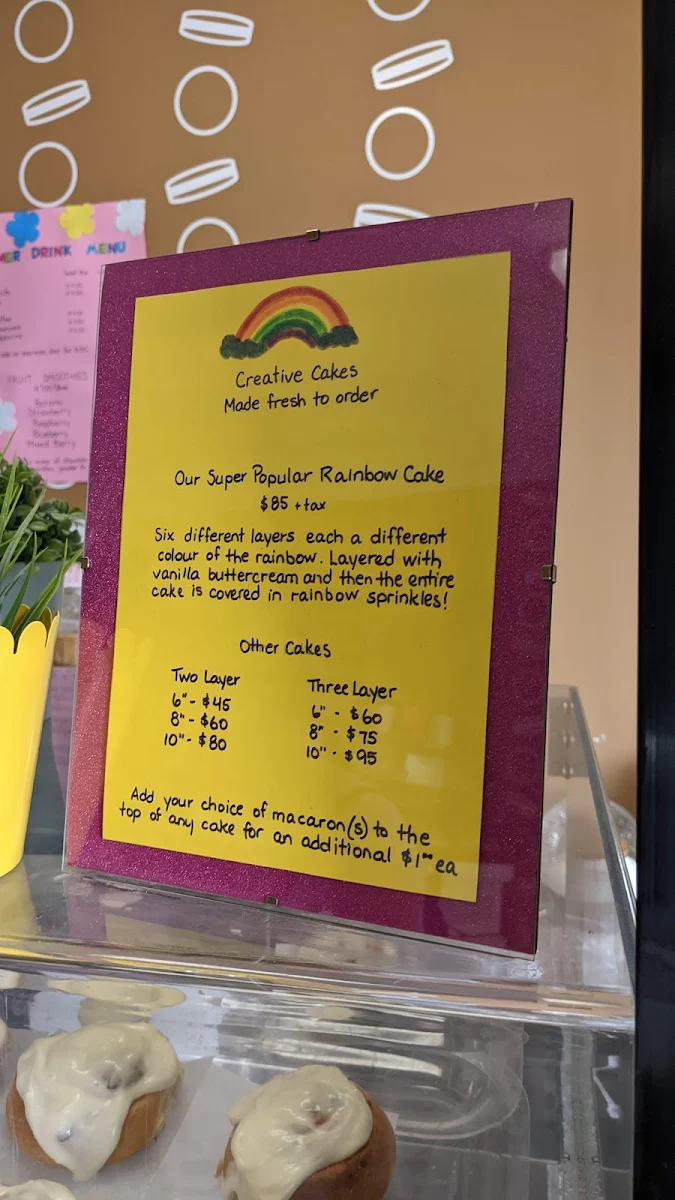 DRINK MENU
FRUIT SMOOTHIES
Banana
Strawberry
Raspberry
Blueberry
Mixed Berry
Creative Cakes
Made fresh to order
Our Super Popular Rainbow Cake
$85 + tax
Six different layers each a different
colour of the rainbow. Layered with
vanilla buttercream and then the entire
cake is covered in rainbow sprinkles!
Other Cakes
Two Layer
6" - $45
8" - $60
10" - $80
Three Layer
6" - $60
8" - $75
10" - $95
Add your choice of macaron(s) to the
top of any cake for an additional $1.00 ea